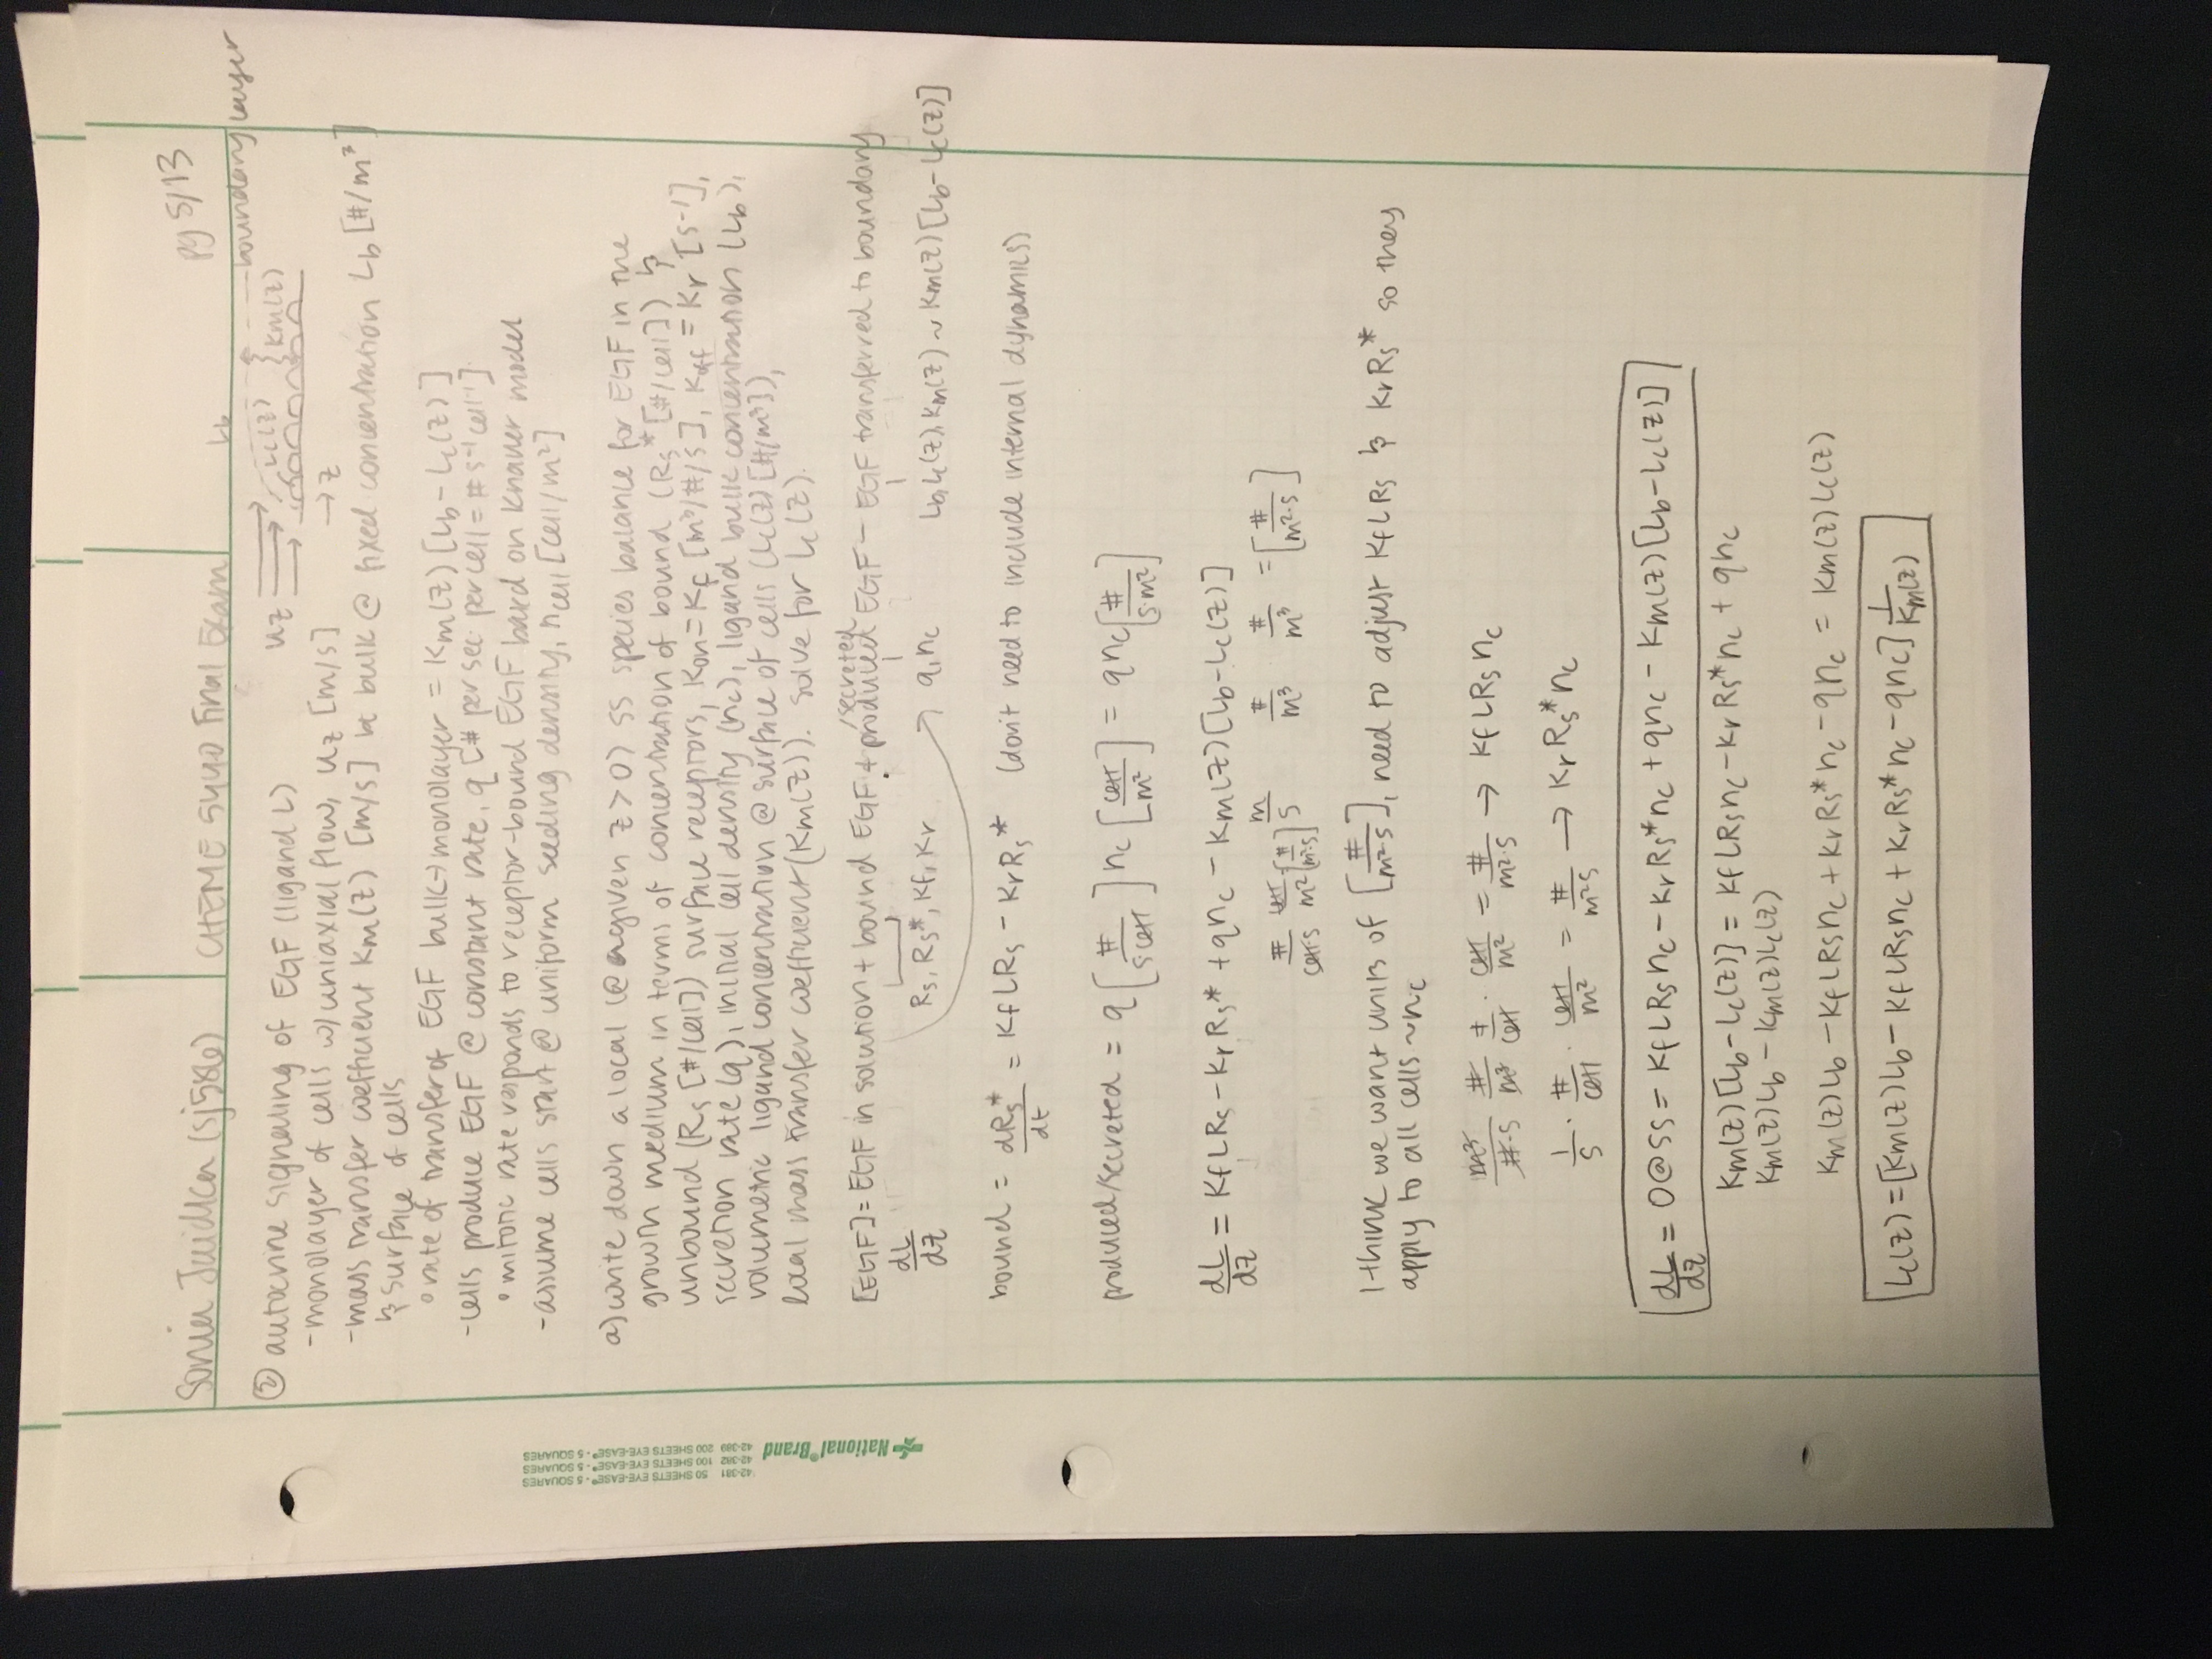 Sonia Jaidka (sj586)
CHEME 5440 Final Exam
pg 5/13
② autocrine signaling of EGF (ligand L)
Lb
boundary layer
uz
Lc(z)
Km(z)
→ z
- monolayer of cells w/ uniaxial flow, uz [m/s]
- mass transfer coefficient Km(z) [m/s] bt bulk @ fixed concentration Lb [#/m³]
& surface of cells
◦ rate of transfer of EGF bulk → monolayer = Km(z)[Lb - Lc(z)]
- cells produce EGF @ constant rate, q [# per sec per cell = # s⁻¹ cell⁻¹]
◦ mitotic rate responds to receptor-bound EGF based on Knauer model
- assume cells start @ uniform seeding density, ncell [cell/m²]
a) write down a local (@ a given z > 0) SS species balance for EGF in the
growth medium in terms of concentration of bound (Rs* [#/cell]) &
unbound (Rs [#/cell]) surface receptors, Kon = Kf [m³/#/s], Koff = Kr [s⁻¹],
secretion rate (q), initial cell density (nc), ligand bulk concentration (Lb),
volumetric ligand concentration @ surface of cells (Lc(z) [#/m³]),
local mass transfer coefficient (Km(z)). Solve for Lc(z).
/secreted
[EGF] = EGF in solution + bound EGF + produced EGF - EGF transferred to boundary
dL/dz
Rs, Rs*, Kf, Kr
q, nc
Lb, Lc(z), Km(z) ~ Km(z)[Lb - Lc(z)]
bound = dRs*/dt = KfLRs - KrRs* (don't need to include internal dynamics)
produced/secreted = q [#/s·cell] nc [cell/m²] = qnc [#/s·m²]
dL/dz = KfLRs - KrRs* + qnc - Km(z)[Lb - Lc(z)]
#/cell·s cell/m² [#/m²·s] m/s #/m³ #/m³ = [#/m²·s]
I think we want units of [#/m²·s], need to adjust KfLRs & KrRs* so they
apply to all cells ~nc
m³/#·s #/m³ #/cell · cell/m² = #/m²·s → KfLRsnc
1/s · #/cell · cell/m² = #/m²s → KrRs*nc
dL/dz = 0 @ SS = KfLRsnc - KrRs*nc + qnc - Km(z)[Lb - Lc(z)]
Km(z)[Lb - Lc(z)] = KfLRsnc - KrRs*nc + qnc
Km(z)Lb - Km(z)Lc(z)
Km(z)Lb - KfLRsnc + KrRs*nc - qnc = Km(z)Lc(z)
Lc(z) = [Km(z)Lb - KfLRsnc + KrRs*nc - qnc] 1/Km(z)
42-381 50 SHEETS EYE-EASE® - 5 SQUARES
42-382 100 SHEETS EYE-EASE® - 5 SQUARES
42-389 200 SHEETS EYE-EASE® - 5 SQUARES
National®Brand